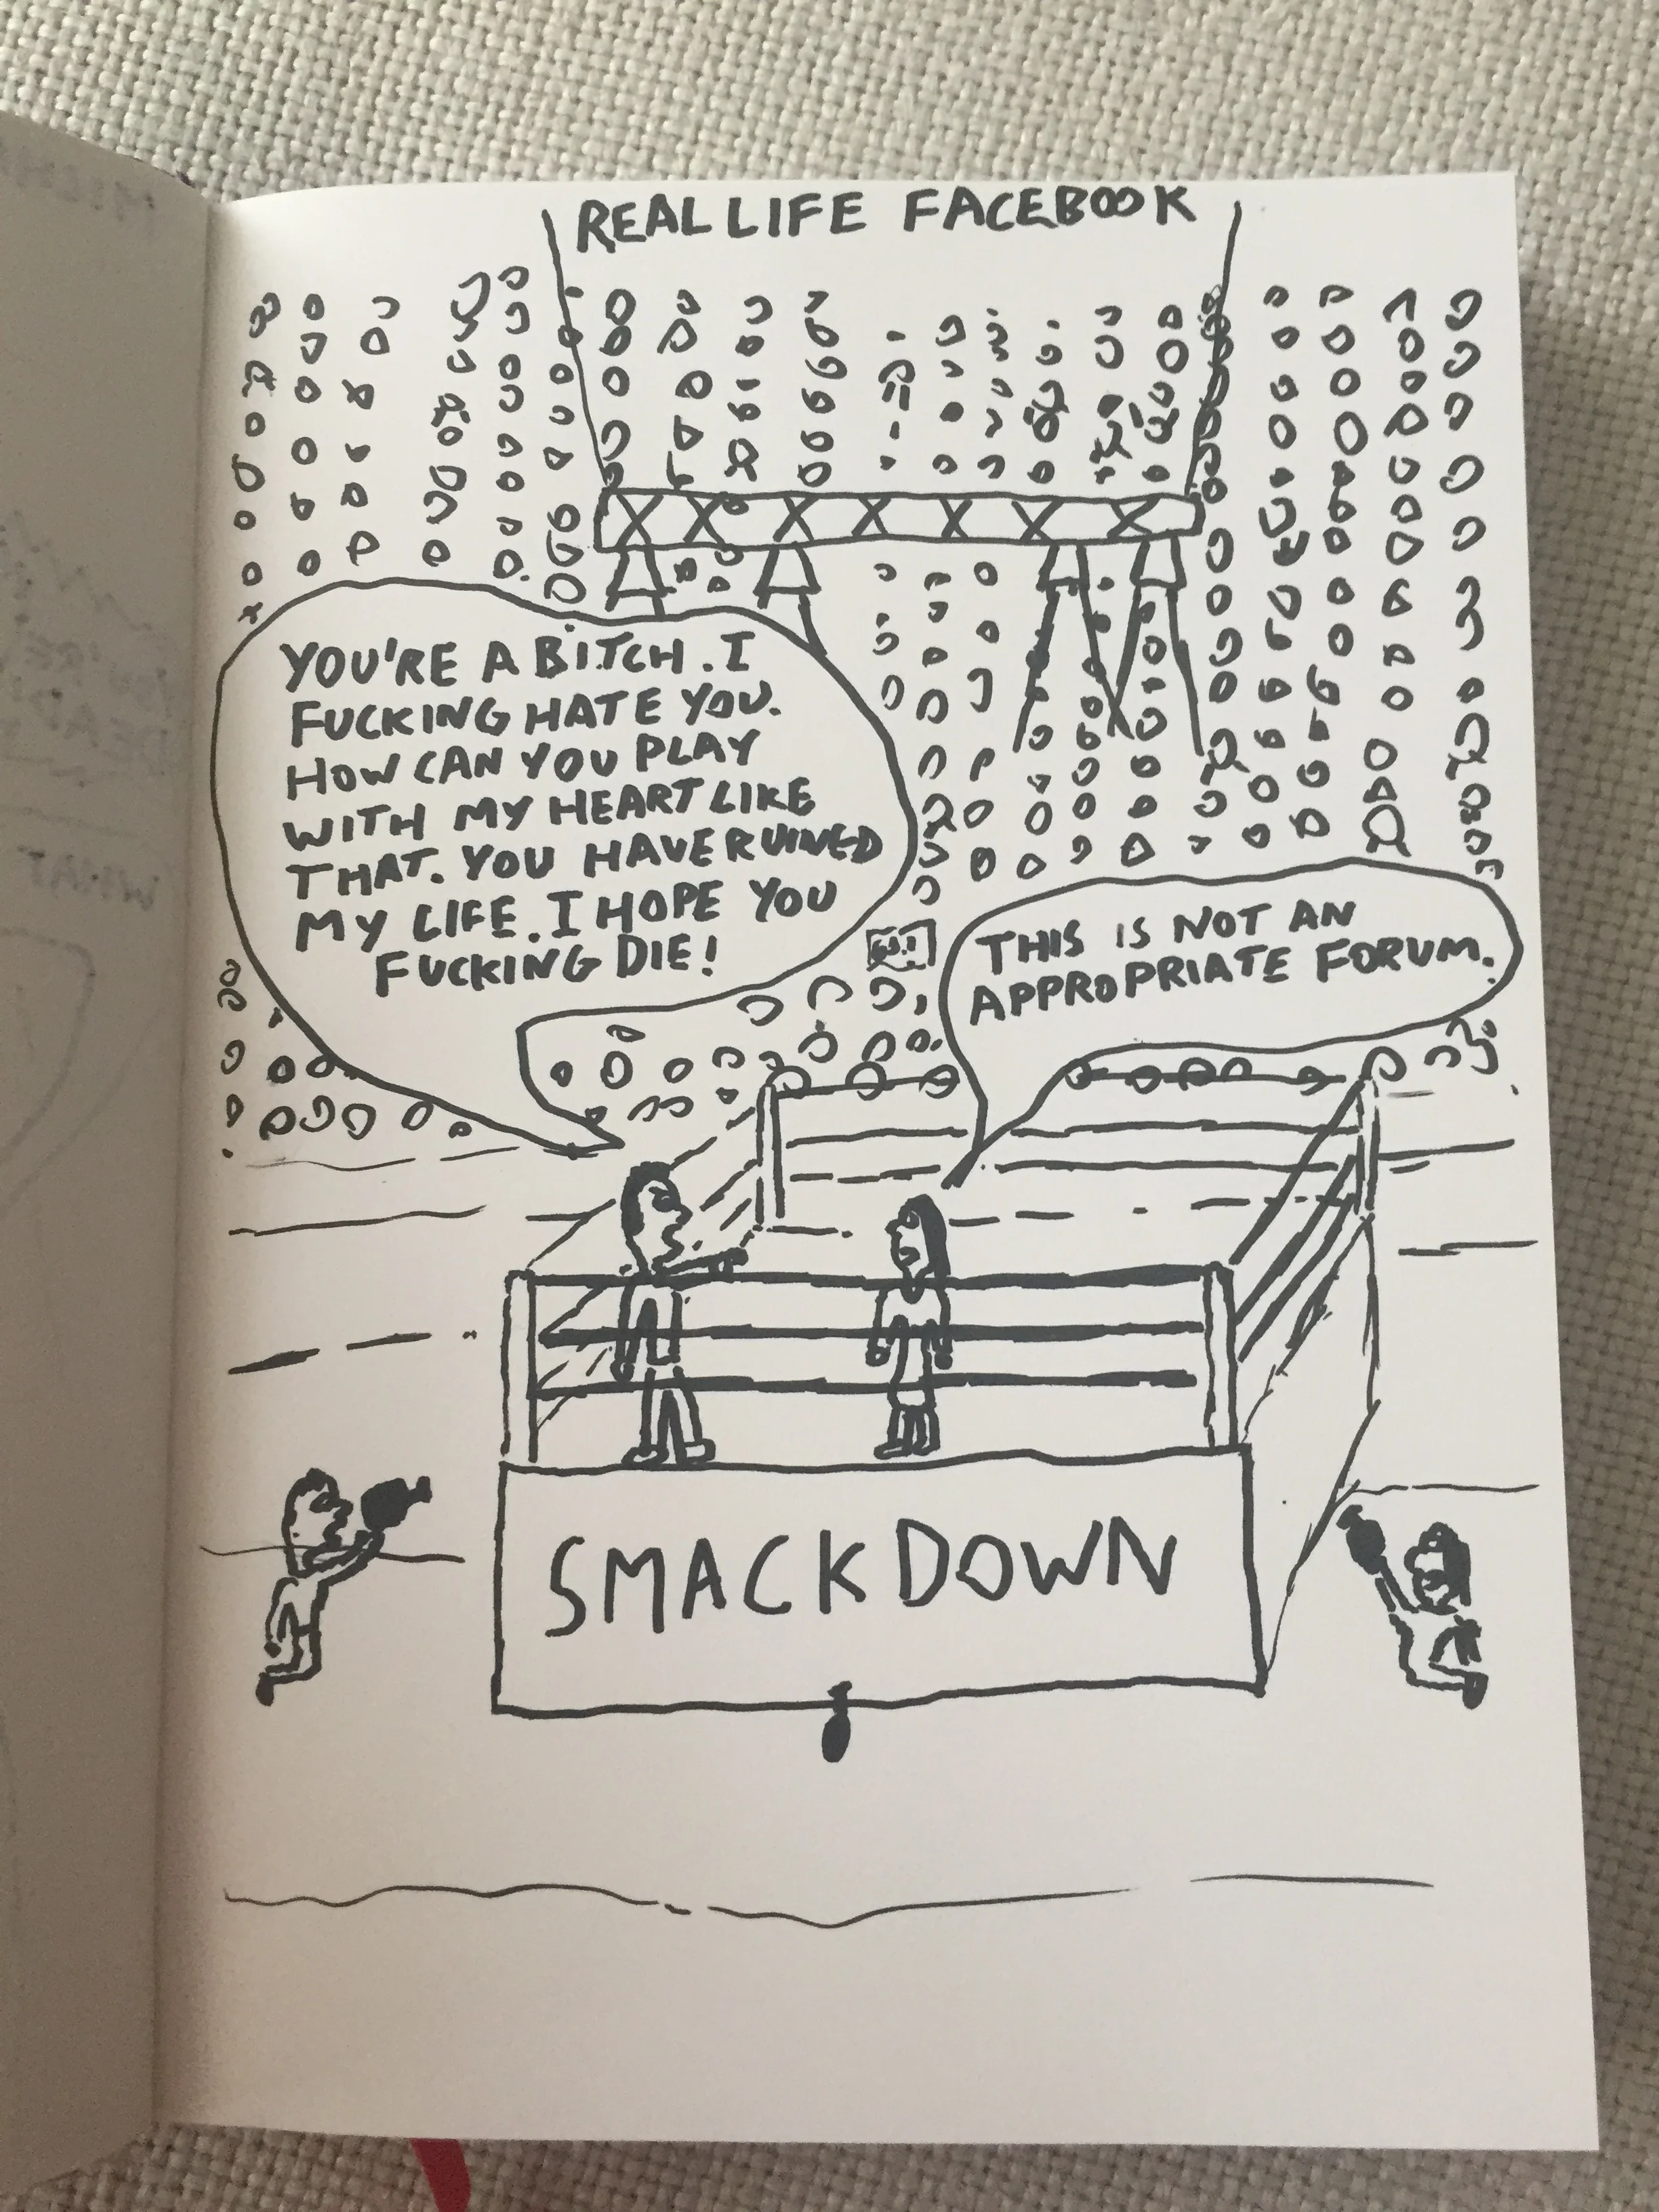 REAL LIFE FACEBOOK
YOU'RE A BITCH. I
FUCKING HATE YOU.
HOW CAN YOU PLAY
WITH MY HEART LIKE
THAT. YOU HAVE RUINED
MY LIFE. I HOPE YOU
FUCKING DIE!
THIS IS NOT AN
APPROPRIATE FORUM.
SMACKDOWN
WHAT